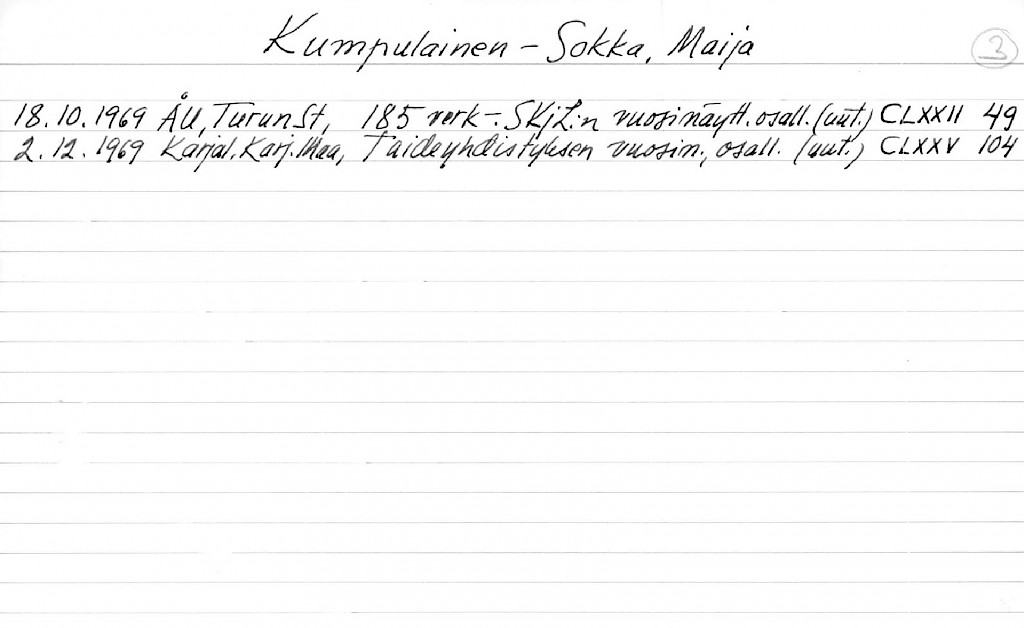 Kumpulainen - Sokka, Maija
3
18.10.1969 ÅU, Turun St, 185 verk-. SKjL:n vuosinäytt. osall. (uut.) CLXXII 49
2.12.1969 Karjal. Karj. Maa, Taideyhdistyksen vuosin., osall. (uut.) CLXXV 104